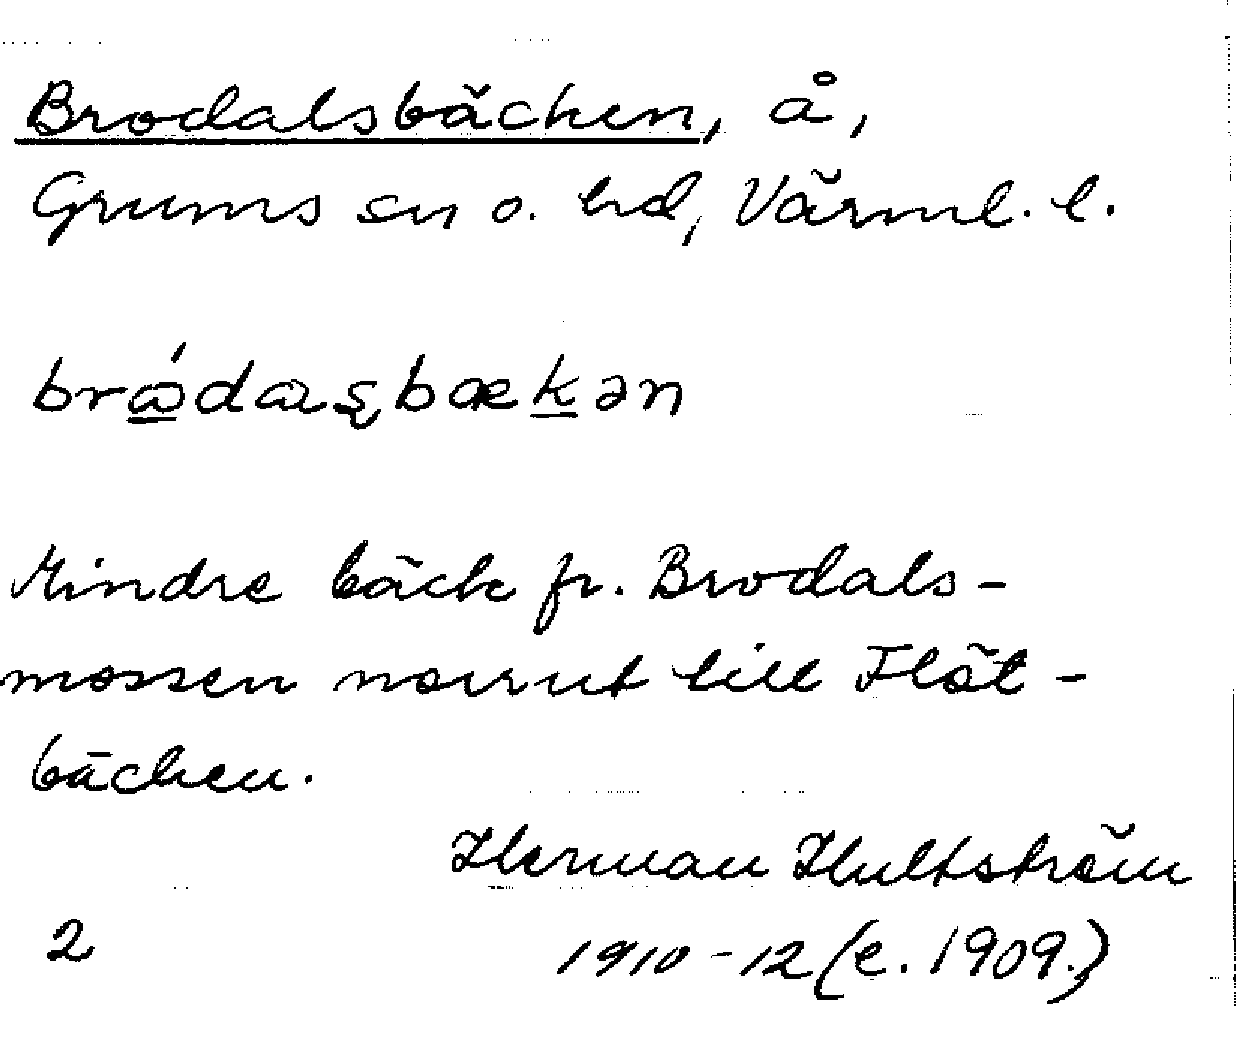 Brodalsbäcken, å,
Grums sn o. hd, Värml. l.
Mindre bäck fr. Brodals-
mossen norrut till Flöt-
bäcken.
Herman Hultström
2 1910-12 (e. 1909.)